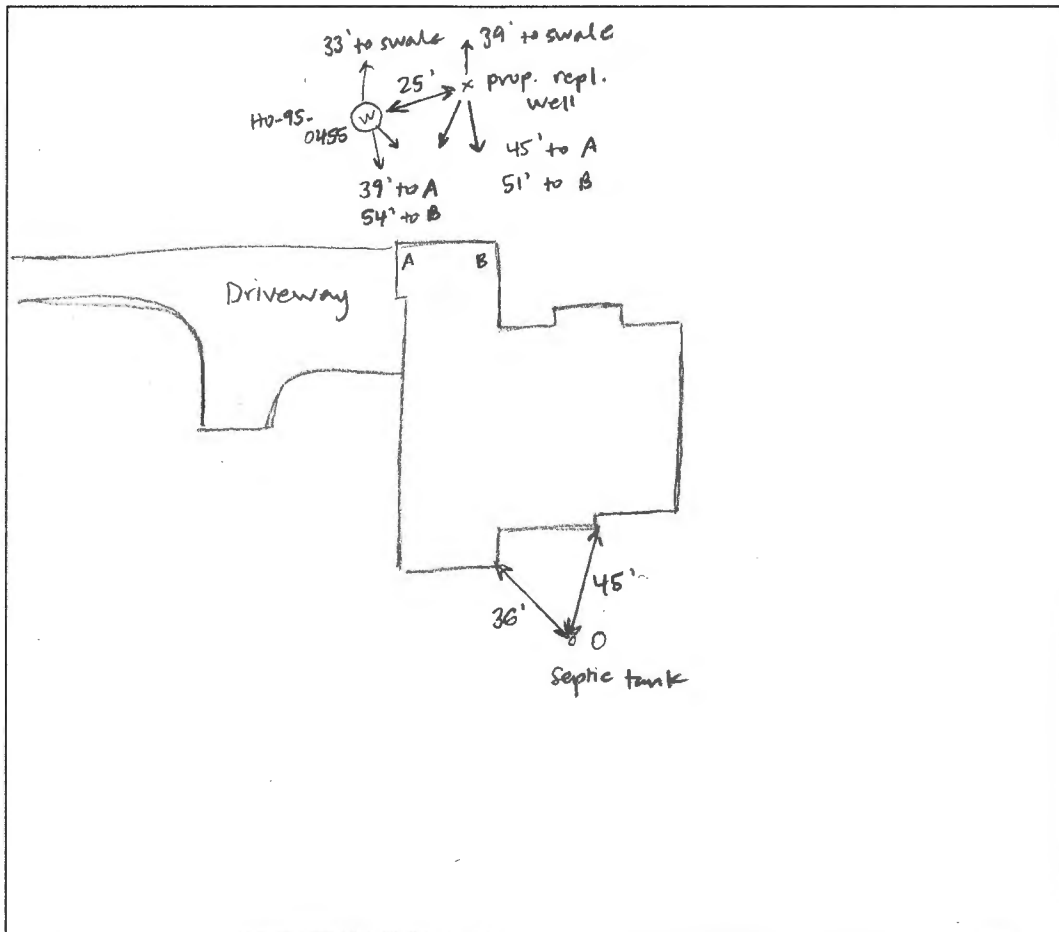 33' to swale
39' to swale
25'
x prop. repl.
well
HO-95-
0455
W
45' to A
51' to B
39' to A
54' to B
A
B
Driveway
45'
36'
Septic tank